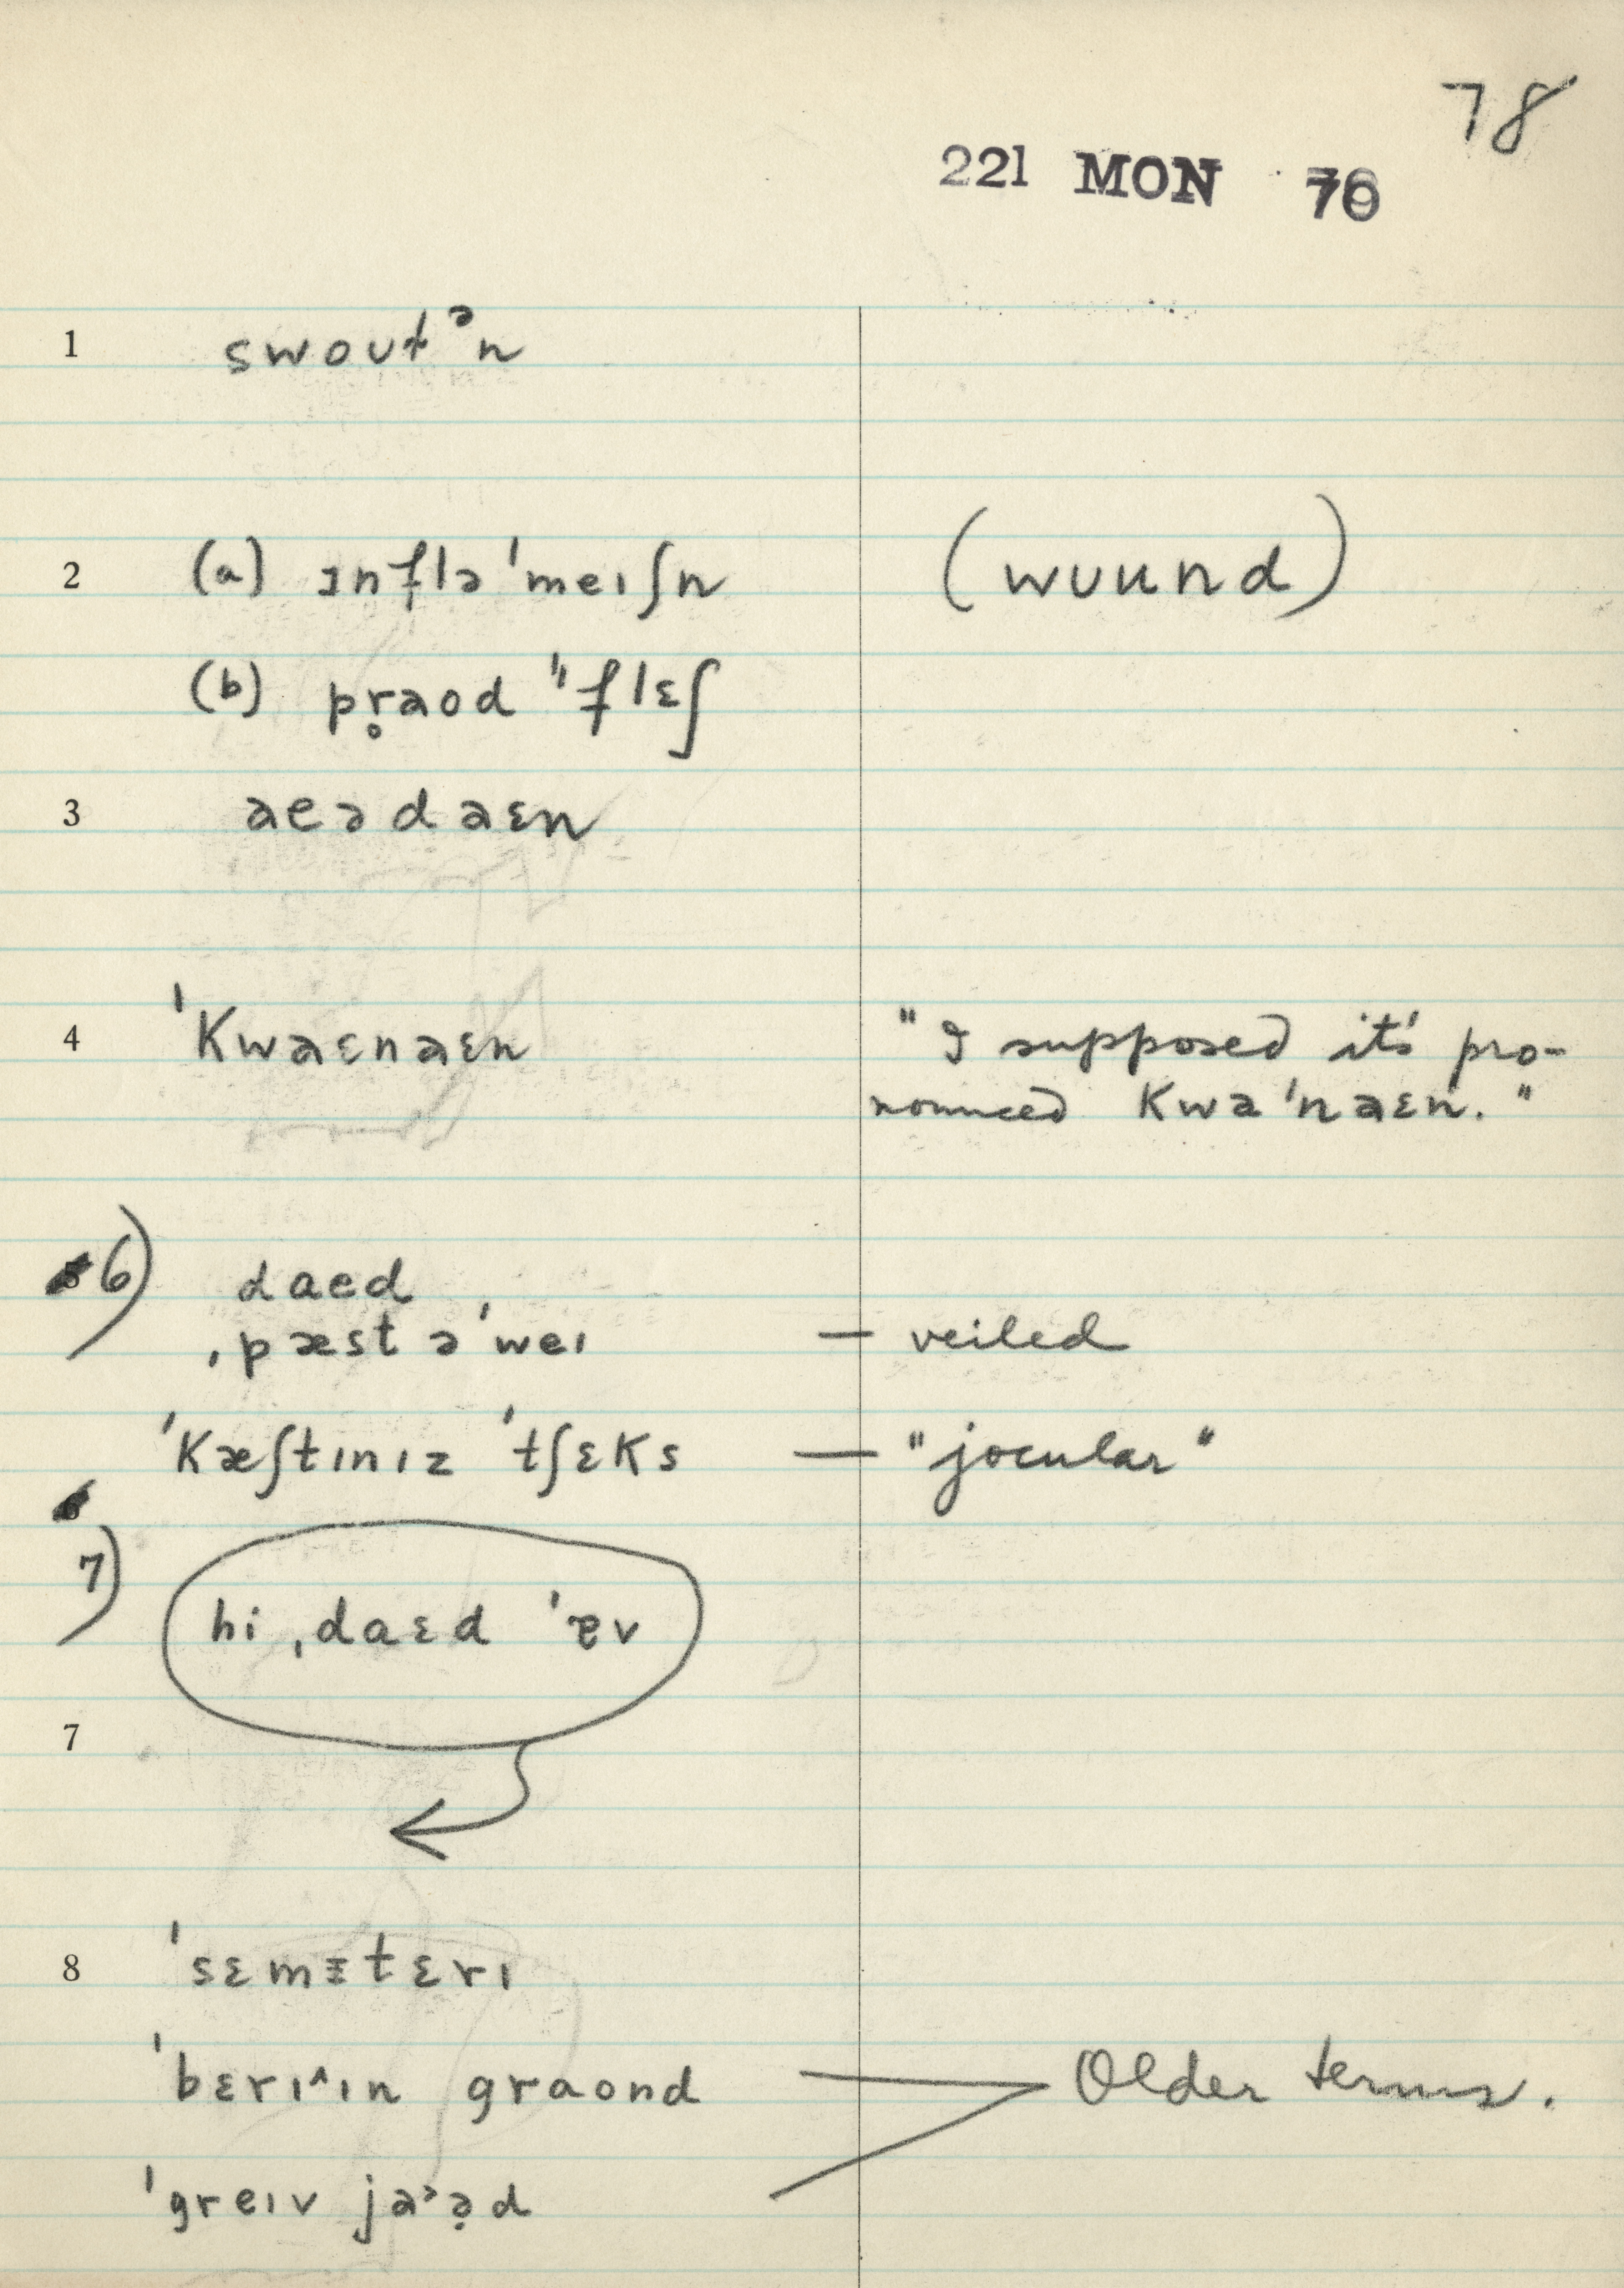 78
221 MON 70
1 swoʊtᵊn
2 (a) ɪnflə'meɪʃn (wʊund)
(b) pr̥aod "flɛʃ
3 aeədaɛn
4 'Kwaɛnaɛn "I supposed it's pro-
nounced Kwa'naɛn."
6) daed
ˌpæst ə'weɪ — veiled
'Kæʃtɪnɪz 'tʃɛKs — "jocular"
7) hi ˌdaɛd 'ɐv
7
8 'sɛmɪtɛrɪ
'bɛrɪ^ɪn graond — Older terms.
'greɪv jaᵊə̣d